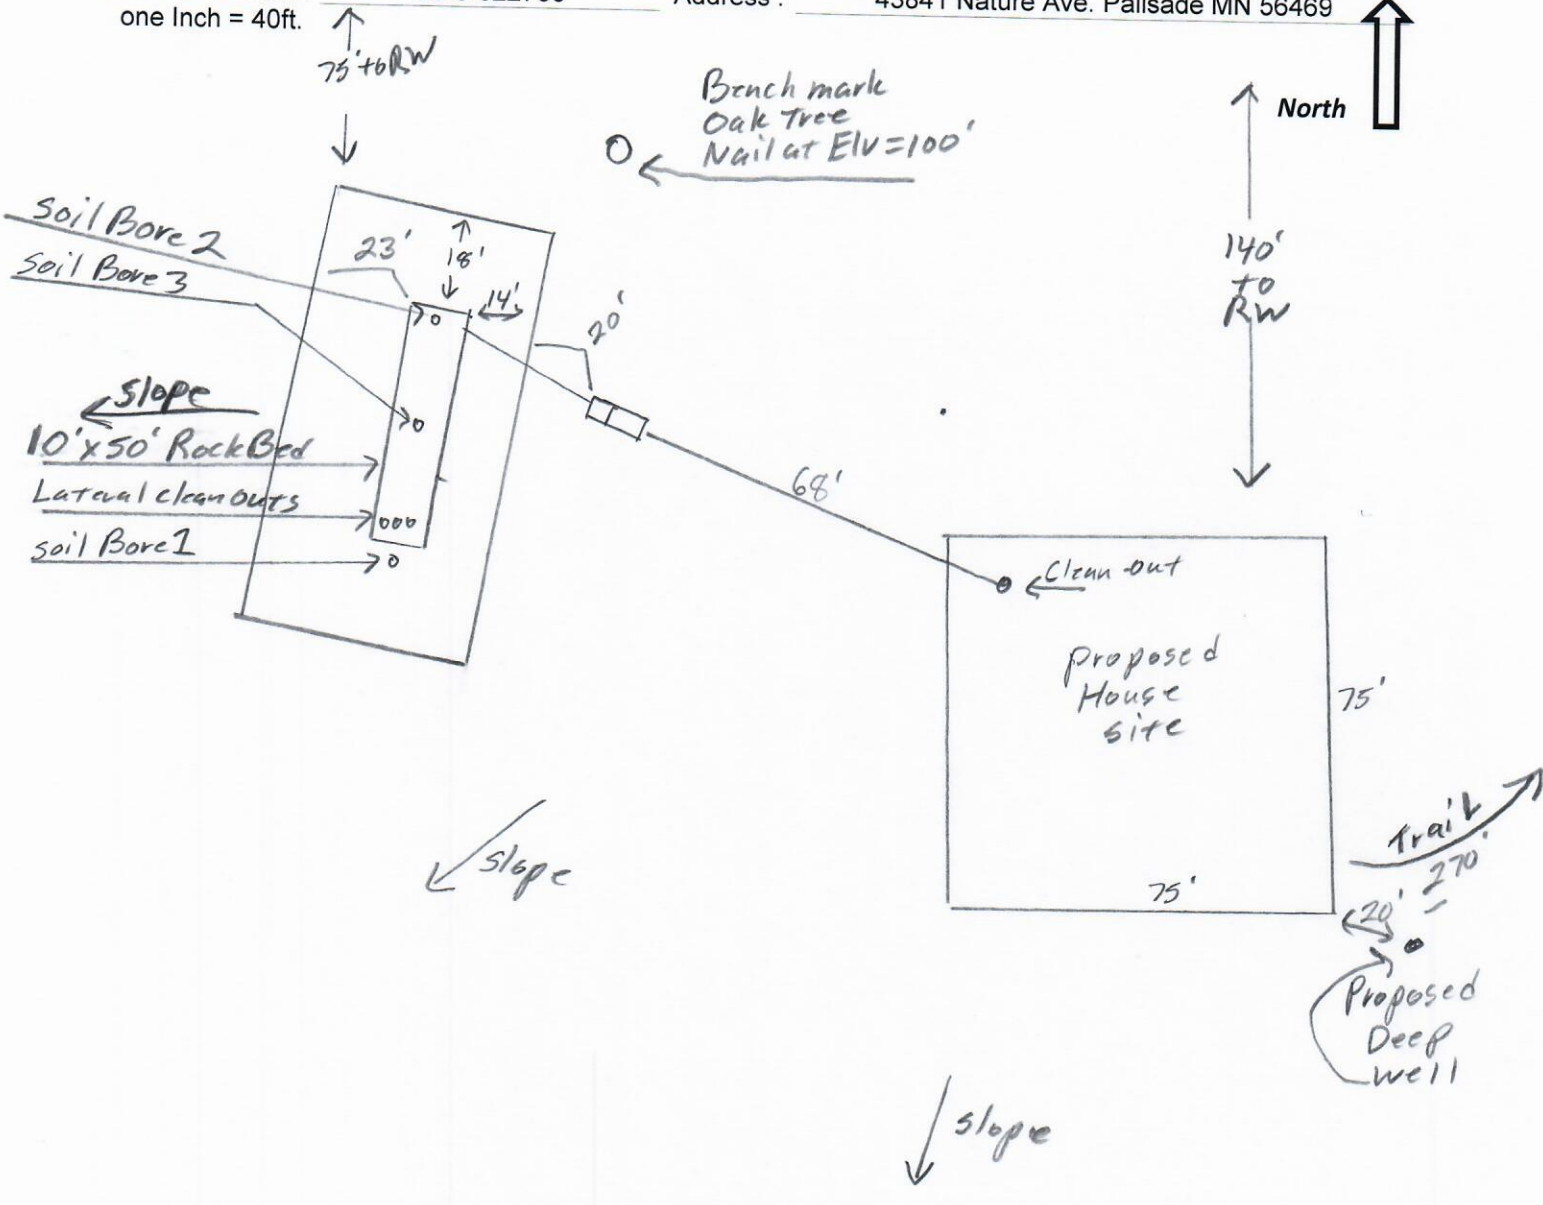 Address :
43841 Nature Ave. Palisade MN 56469
one Inch = 40ft.
75' to RW
Bench mark
Oak Tree
Nail at Elv=100'
North
140'
to
RW
Soil Bore 2
Soil Bore 3
23'
18'
14'
20'
Slope
10'x50' Rock Bed
Lateral clean outs
soil Bore 1
68'
Clean out
Proposed
House
site
75'
75'
Slope
Trail
270'
20'
Proposed
Deep
well
slope